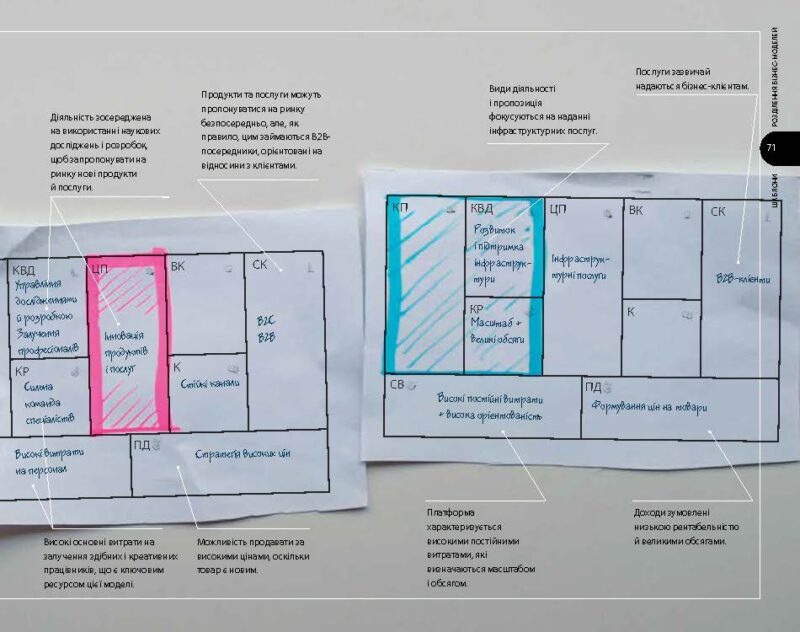 Послуги зазвичай
надаються бізнес-клієнтам.
РОЗДІЛЕННЯ БІЗНЕС-МОДЕЛЕЙ
71
ШАБЛОНИ
Діяльність зосереджена
на використанні наукових
досліджень і розробок,
щоб запропонувати на
ринку нові продукти
й послуги.
Продукти та послуги можуть
пропонуватися на ринку
безпосередньо, але, як
правило, цим займаються B2B-
посередники, орієнтовані на
відносини з клієнтами.
Види діяльності
і пропозиція
фокусуються на наданні
інфраструктурних послуг.
КВД
Управління
дослідженнями
й розробкою
Залучення
професіоналів
КР
Сильна
команда
спеціалістів
ЦП
Інновація
продуктів
і послуг
ВК
К
Стійкі канали
СК
B2C
B2B
Високі витрати
на персонал
ПД
Стратегія високих цін
КП
КВД
Розвиток
і підтримка
інфраструк-
тури
КР
Масштаб +
великі обсяги
ЦП
Інфраструк-
турні послуги
ВК
К
СК
B2B-клієнти
СВ
Високі постійні витрати
+ висока орієнтованість
ПД
Формування цін на товари
Високі основні витрати на
залучення здібних і креативних
працівників, що є ключовим
ресурсом цієї моделі.
Можливість продавати за
високими цінами, оскільки
товар є новим.
Платформа
характеризується
високими постійними
витратами, які
визначаються масштабом
і обсягом.
Доходи зумовлені
низькою рентабельністю
й великими обсягами.